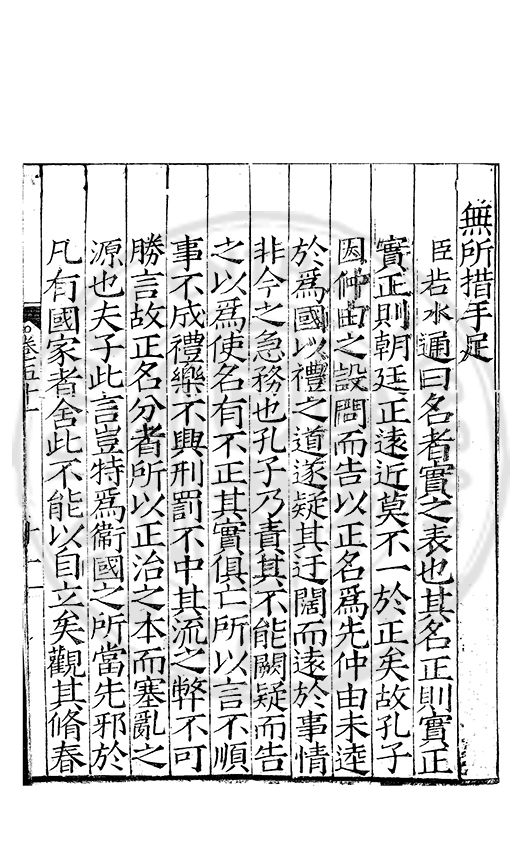 無所措手足
臣若水通曰名者實之表也其名正則實正
實正則朝廷正遠近莫不一於正矣故孔子
因仲由之設問而告以正名爲先仲由未逹
於爲國以禮之道遂疑其迂闊而遠於事情
非今之急務也孔子乃責其不能闕疑而告
之以爲使名有不正其實俱亡所以言不順
事不成禮樂不興刑罰不中其流之弊不可
勝言故正名分者所以正治之本而塞亂之
源也夫子此言豈特爲衞國之所當先邪於
凡有國家者舍此不能以自立矣觀其脩春
卷五十
十一